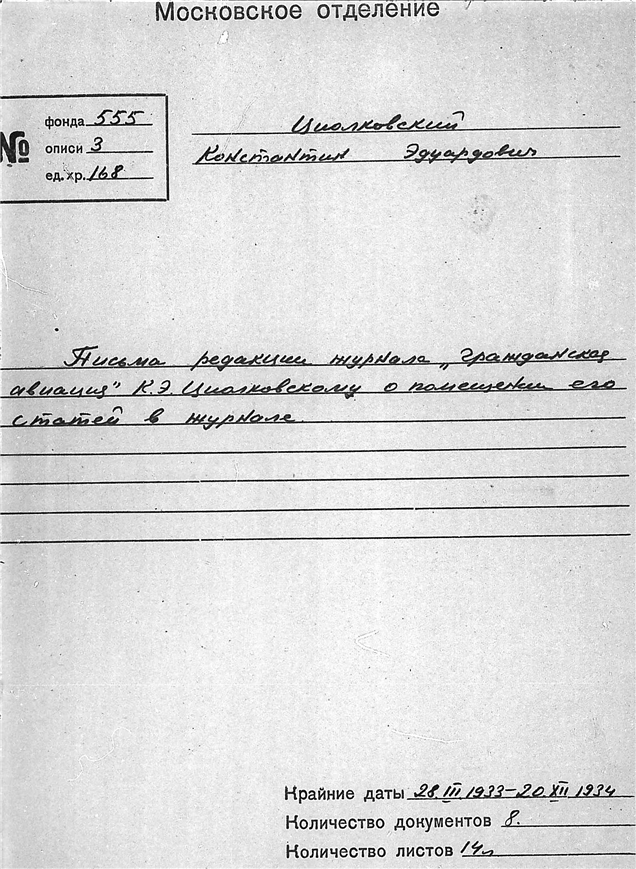 Московское отделение
№
фонда 555
описи 3
ед. хр. 168
Циолковский
Константин Эдуардович
Письма редакции журнала „Гражданская
авиация" К.Э. Циолковскому о помещении его
статей в журнале.
Крайние даты 28 III 1933–20 XII 1934
Количество документов 8.
Количество листов 14л